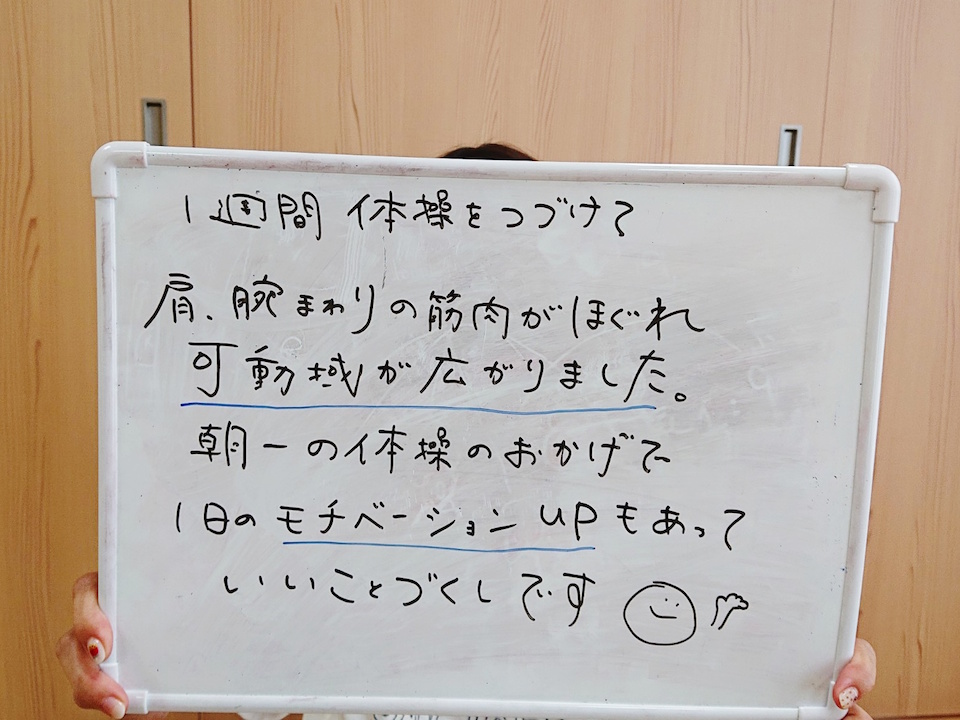 1週間 体操をつづけて
肩、腕まわりの筋肉がほぐれ
可動域が広がりました。
朝一の体操のおかげで
1日のモチベーションUPもあって
いいことづくしです